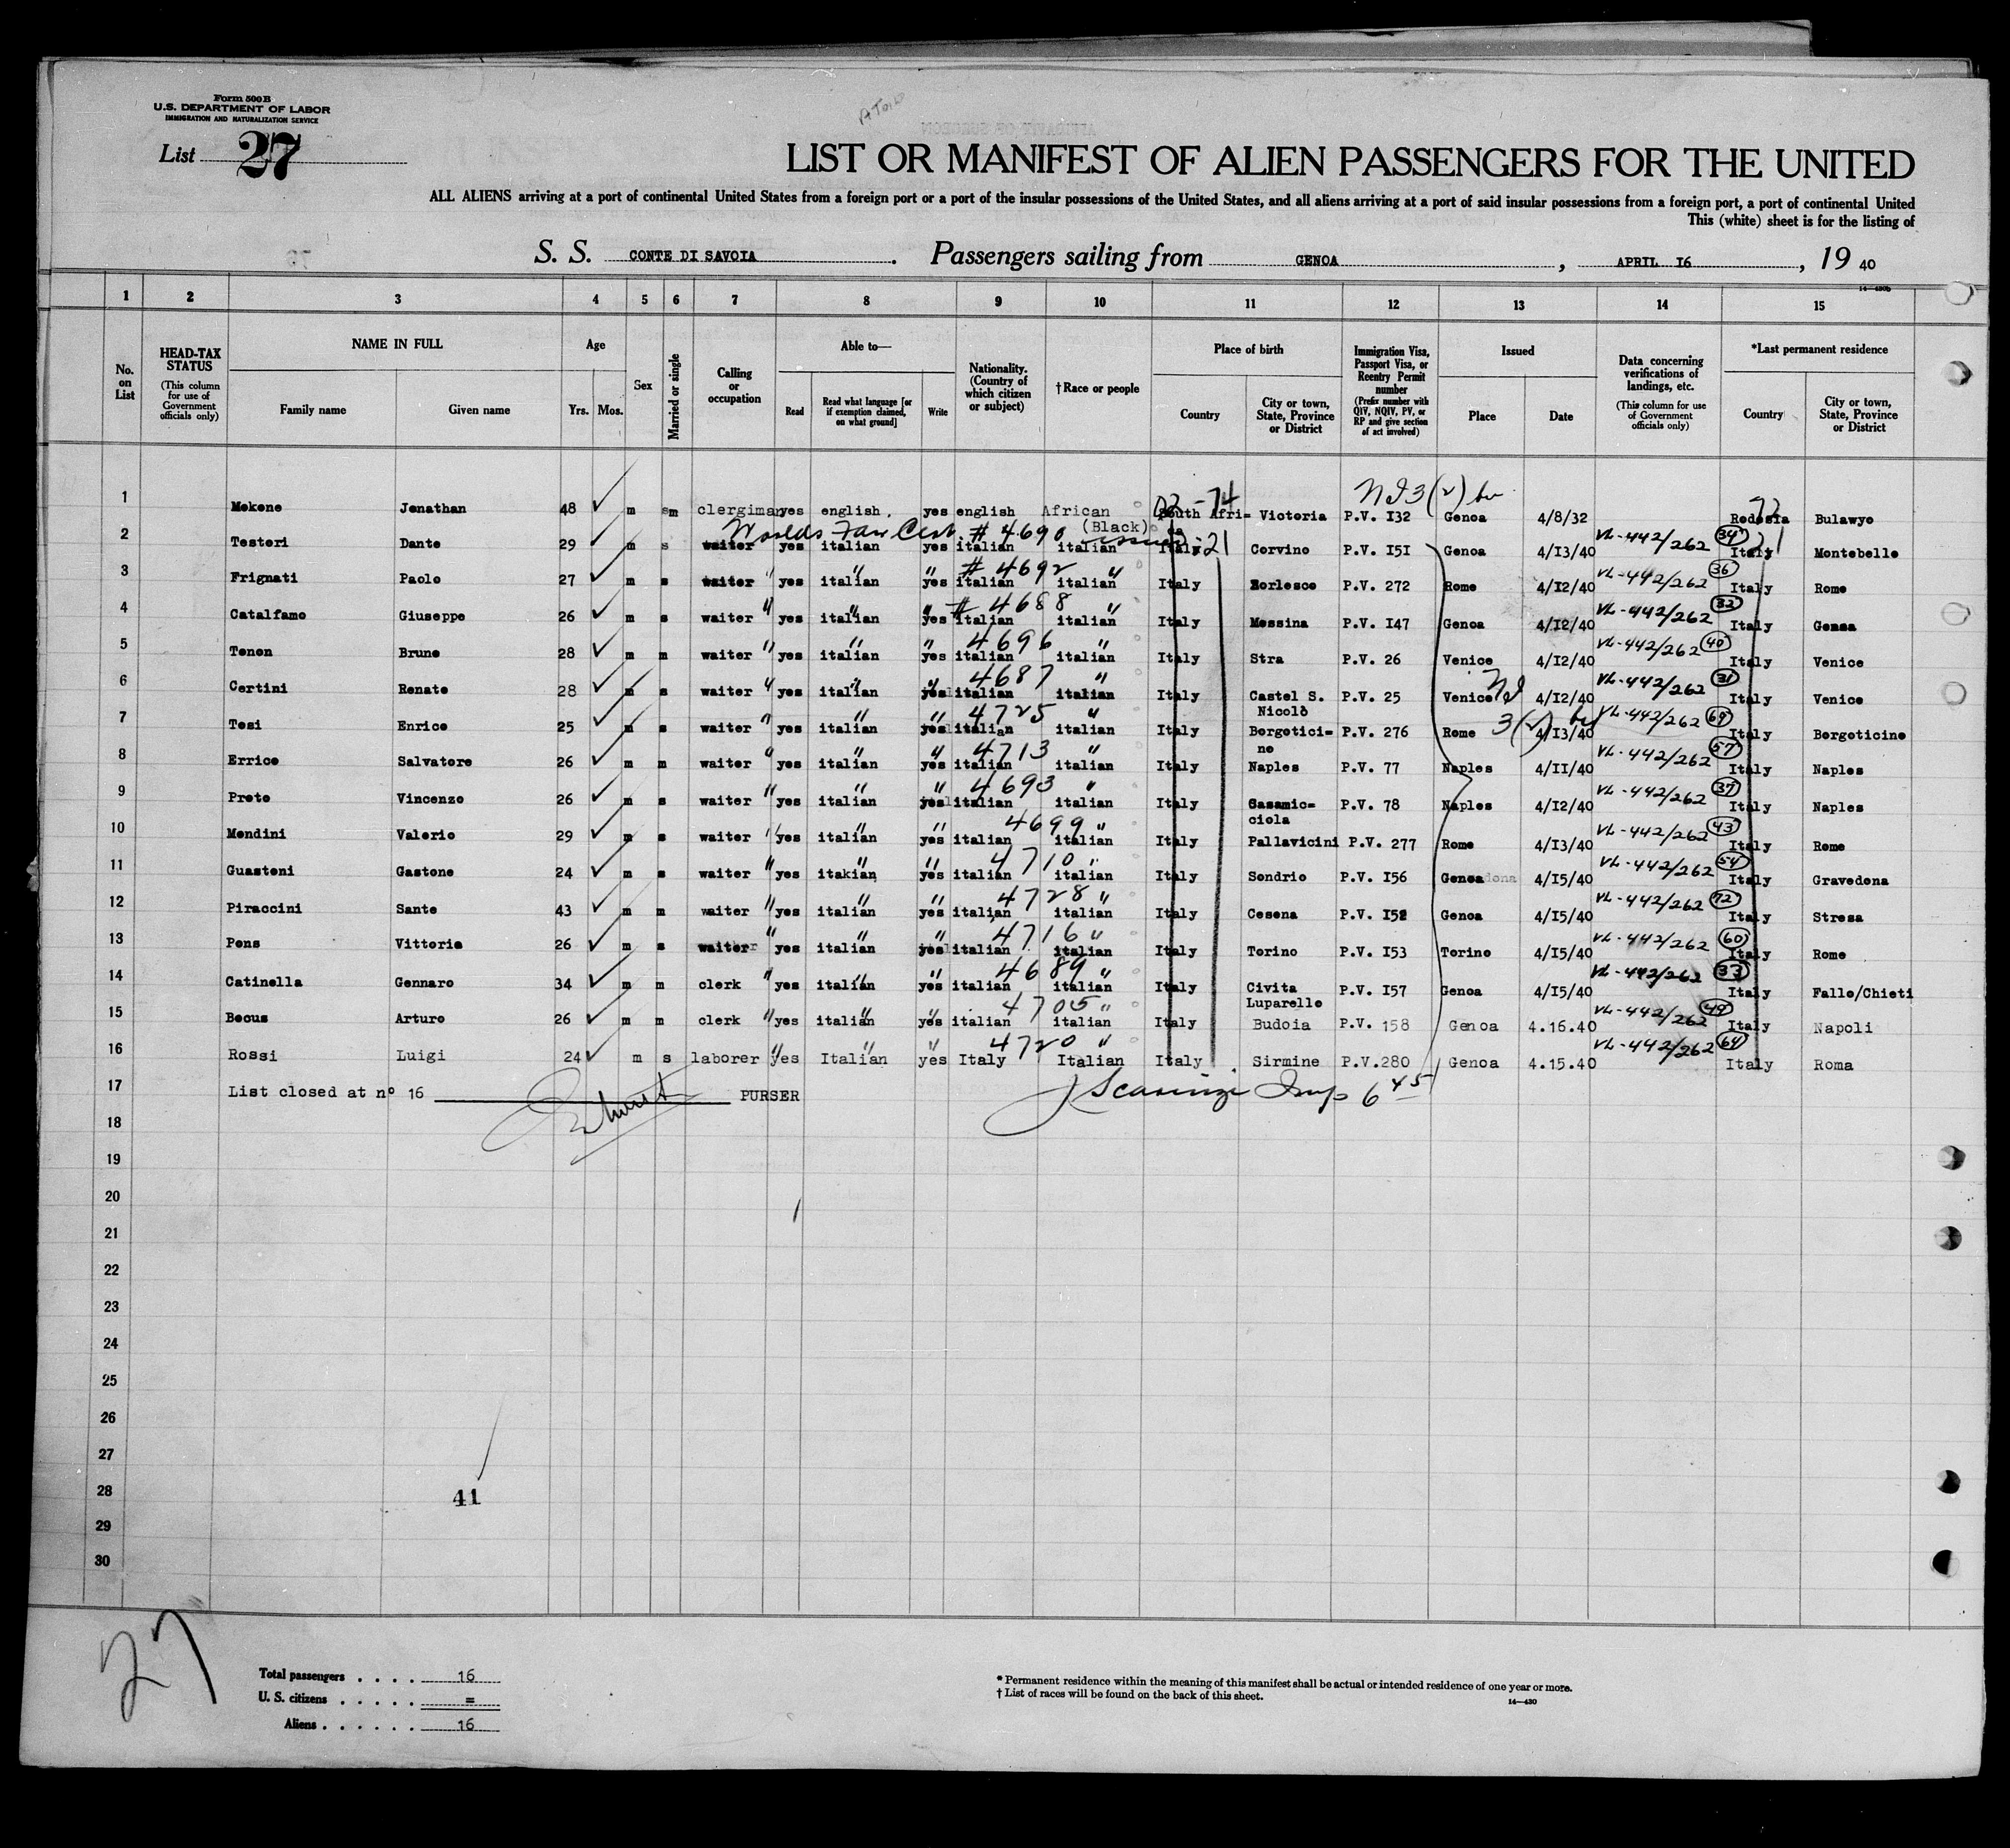 Form 500 B
U.S. DEPARTMENT OF LABOR
IMMIGRATION AND NATURALIZATION SERVICE
List 27
LIST OR MANIFEST OF ALIEN PASSENGERS FOR THE UNITED
ALL ALIENS arriving at a port of continental United States from a foreign port or a port of the insular possessions of the United States, and all aliens arriving at a port of said insular possessions from a foreign port, a port of continental United
This (white) sheet is for the listing of
S. S. CONTE DI SAVOIA. Passengers sailing from GENOA, APRIL I6, 19 40
1 2 3 4 5 6 7 8 9 10 11 12 13 14 15
No. on List
HEAD-TAX STATUS (This column for use of Government officials only)
NAME IN FULL Family name Given name
Age Yrs. Mos.
Sex
Married or single
Calling or occupation
Able to— Read Read what language [or if exemption claimed, on what ground] Write
Nationality. (Country of which citizen or subject)
†Race or people
Place of birth Country City or town, State, Province or District
Immigration Visa, Passport Visa, or Reentry Permit number (Prefix number with QIV, NQIV, PV, or RP and give section of act involved)
Issued Place Date
Data concerning verifications of landings, etc. (This column for use of Government officials only)
*Last permanent residence Country City or town, State, Province or District
1 Mokone Jonathan 48 m m clergiman yes english. yes english African (Black) South Afri=ca Victoria P.V. I32 Genoa 4/8/32 Rodesia Bulawyo
Worlds Fair Cert. # 4690 issued
2 Testori Dante 29 m s waiter yes italian yes italian italian Italy 21 Corvino P.V. I5I Genoa 4/I3/40 VL-442/262 34 Italy Montebello
3 Frignati Paolo 27 m s waiter " yes italian " yes italian # 4692 italian " Italy Zorlesco P.V. 272 Rome 4/I2/40 VL-442/262 36 Italy Rome
4 Catalfamo Giuseppe 26 m s waiter " yes italian " yes italian # 4688 italian " Italy Messina P.V. I47 Genoa 4/I2/40 VL-442/262 32 Italy Genoa
5 Tonon Bruno 28 m m waiter " yes italian " yes italian 4696 italian " Italy Stra P.V. 26 Venice 4/I2/40 VL-442/262 40 Italy Venice
6 Certini Renato 28 m s waiter " yes italian " yes italian 4687 italian " Italy Castel S. Nicolò P.V. 25 Venice 4/I2/40 VL-442/262 31 Italy Venice
7 Tosi Enrico 25 m s waiter " yes italian " yes italian 4725 italian " Italy Borgotici=no P.V. 276 Rome 4/I3/40 VL-442/262 69 Italy Borgoticino
8 Errico Salvatore 26 m m waiter " yes italian " yes italian 4713 italian " Italy Naples P.V. 77 Naples 4/II/40 VL-442/262 57 Italy Naples
9 Preto Vincenzo 26 m s waiter " yes italian " yes italian 4693 italian " Italy Casamic=ciola P.V. 78 Naples 4/I2/40 VL-442/262 37 Italy Naples
10 Mondini Valerio 29 m s waiter " yes italian " yes italian 4699 italian " Italy Pallavicini P.V. 277 Rome 4/I3/40 VL-442/262 43 Italy Rome
11 Guastoni Gastone 24 m s waiter " yes itakian " yes italian 4710 italian " Italy Sondrio P.V. I56 Genoa 4/I5/40 VL-442/262 54 Italy Gravedona
12 Piraccini Sante 43 m m waiter " yes italian " yes italian 4728 italian " Italy Cesena P.V. I52 Genoa 4/I5/40 VL-442/262 72 Italy Stresa
13 Pons Vittorio 26 m s waiter " yes italian " yes italian 4716 italian " Italy Torino P.V. I53 Torino 4/I5/40 VL-442/262 60 Italy Rome
14 Catinella Gennaro 34 m m clerk " yes italian " yes italian 4689 italian " Italy Civita Luparello P.V. I57 Genoa 4/I5/40 VL-442/262 33 Italy Fallo/Chieti
15 Becus Arturo 26 m m clerk " yes italian " yes italian 4705 italian " Italy Budoia P.V. 158 Genoa 4.16.40 VL-442/262 49 Italy Napoli
16 Rossi Luigi 24 m s laborer " yes Italian " yes Italy 4720 Italian " Italy Sirmine P.V.280 Genoa 4.15.40 VL-442/262 64 Italy Roma
17 List closed at nº 16 PURSER
18
19
20
21
22
23
24
25
26
27
28
29
30
41
27
Total passengers . . . . 16
U. S. citizens . . . . . =
Aliens . . . . . . 16
* Permanent residence within the meaning of this manifest shall be actual or intended residence of one year or more.
† List of races will be found on the back of this sheet.
14—430